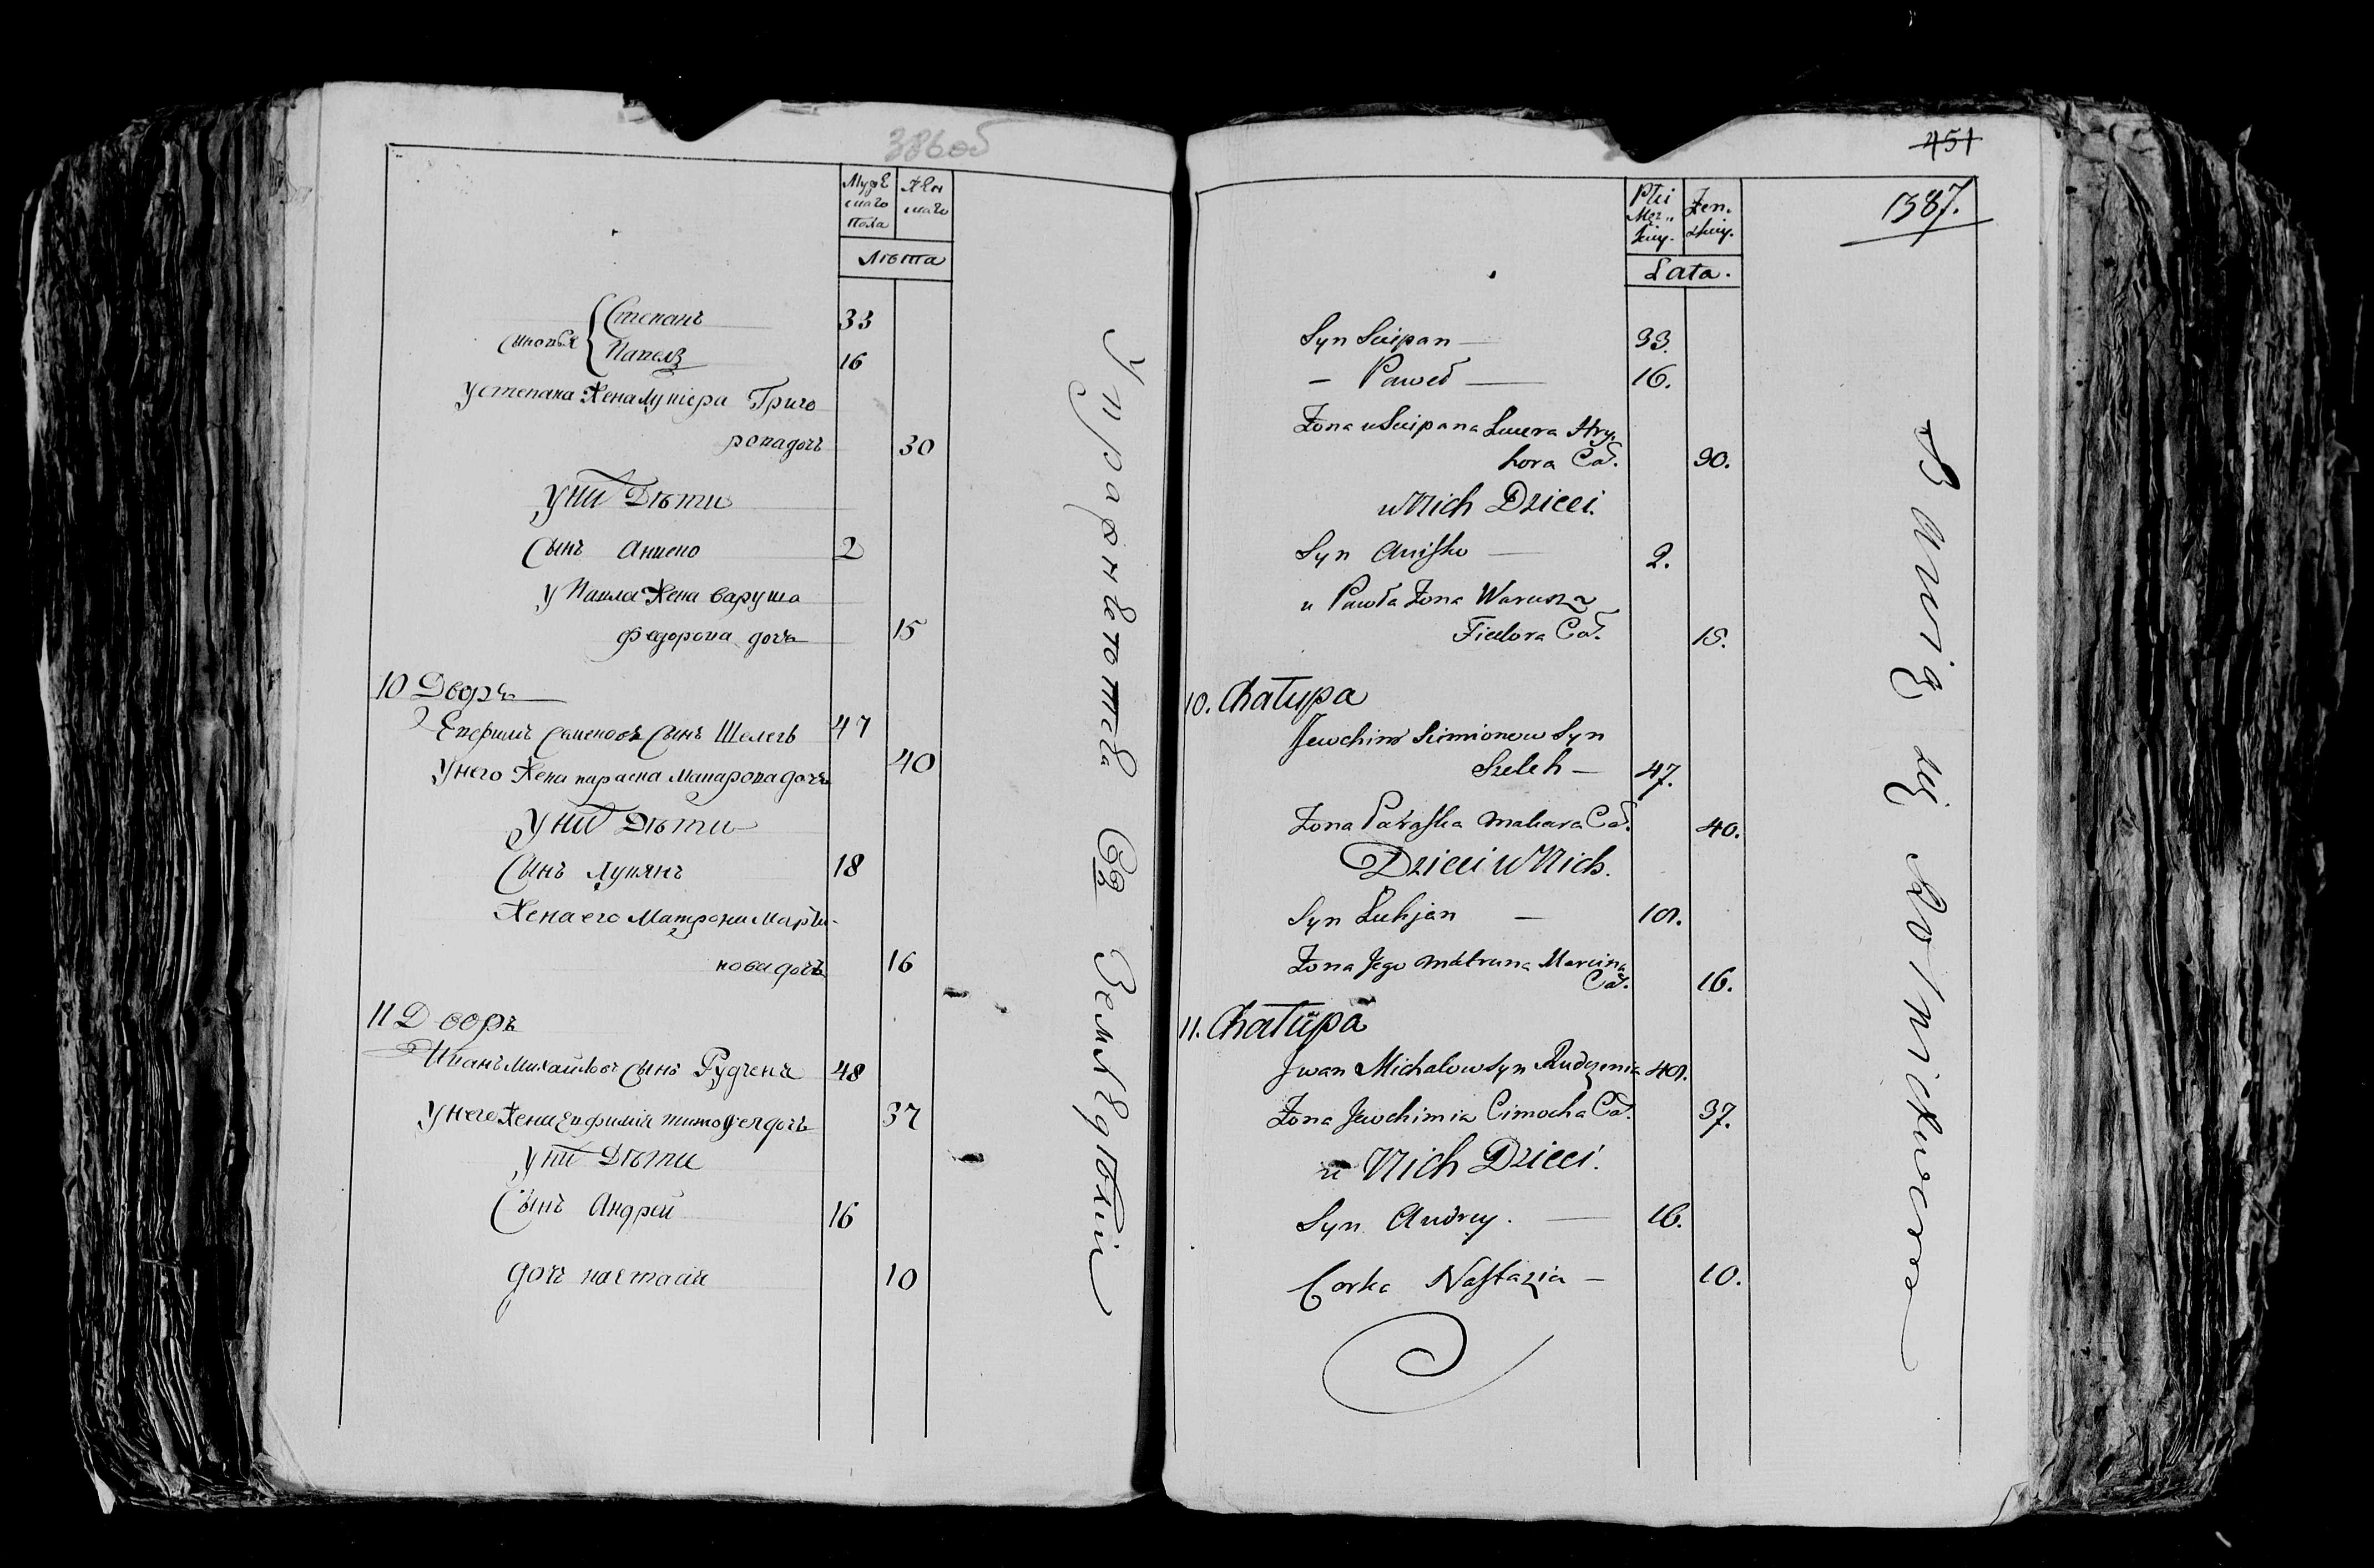 386об
Мужескаго пола
Женскаго
Лѣта
Сыновья { Степанъ 33
Павелъ 16
У Степана жена Лукіера Григо
рова дочь 30
У ни Дѣти
Сынъ Аниско 2
У Павла жена Варуша
Федорова дочь 15
10 Дворъ
Ефимъ Семеновъ сынъ Шелегъ 47
У него жена Параска Макарова дочь 40
У ни Дѣти
Сынъ Лукянъ 18
Жена его Матрона Марти-
нова дочь 16
11 Дворъ
Иванъ Михайловъ сынъ Рудченя 48
У него жена Евфимія Тимофея дочь 37
У ни Дѣти
Сынъ Андрей 16
дочь Настасія 10
Въ Земледѣліи
451
387.
Płci Męz.. kiey.
Żen. skiey.
Lata.
Syn Sciepan — 33.
— Paweł — 16.
Żona u Sciepana Lucera Hry
hora Cał. 30.
u Nich Dzieci.
Syn Anisko — 2.
u Pawła Żona Warusza
Fiedora Cał. 15.
10. Chałupa
Jewchim Simionow Syn
Szeleh — 47.
Żona Paraska Makara Cał. 40.
Dzieci u Nich.
Syn Łukjan — 18.
Żona Jego Matruna Marcina
Cał. 16.
11. Chałupa
Jwan Michałow Syn Rudzenia 48.
Żona Jewchimia Cimocha Cał. 37.
u Nich Dzieci.
Syn Andrey. — 16.
Corka Nastazia — 10.